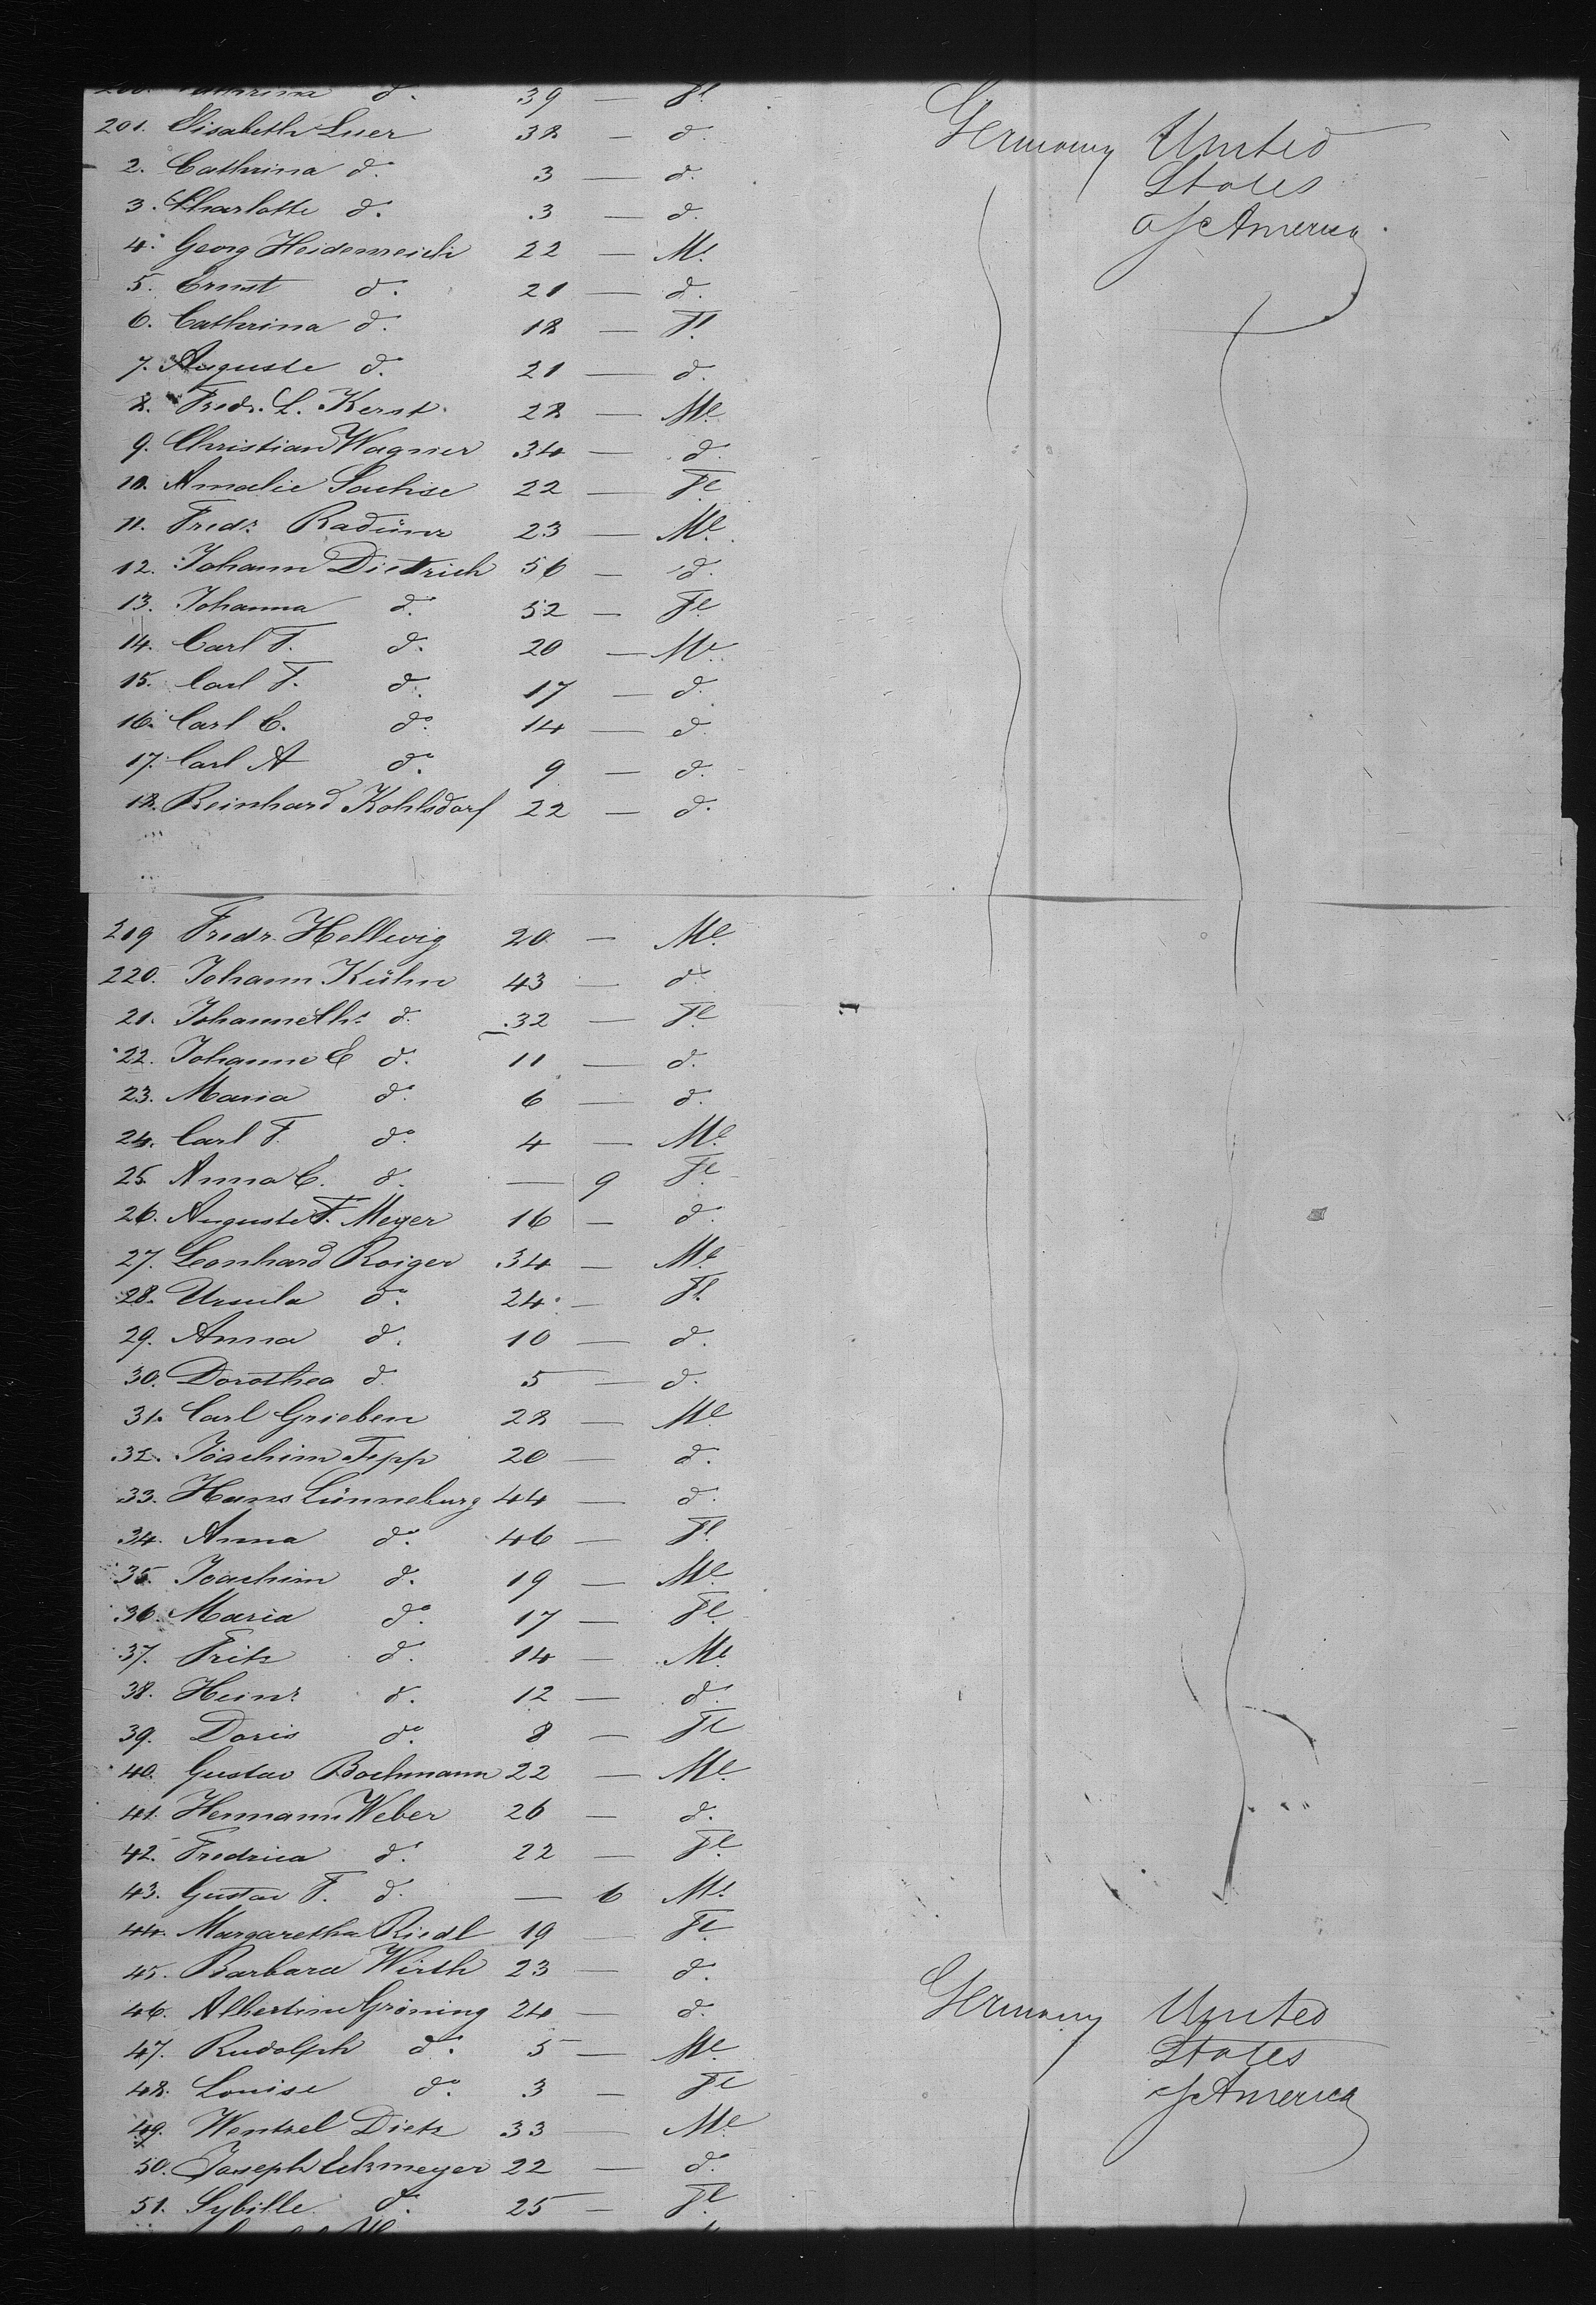 39 — Fl.
201. Elisabeth Luer 38 — do. Germany United
2. Cathrina do. 3 — do. States
3. Charlotte do. 3 — do. of America
4. Georg Heidenreich 22 — Ml.
5. Ernst do. 21 — do.
6. Cathrina do. 18 — Fl.
7. Auguste do. 21 — do.
8. Fredr. L. Kerst 28 — Ml.
9. Christian Wagner 34 — do.
10. Amalie Sachse 22 — Fl.
11. Fredr. Radünz 23 — Ml.
12. Johann Dietrich 56 — do.
13. Johanna do. 52 — Fl.
14. Carl F. do. 20 — Ml.
15. Carl F. do. 17 — do.
16. Carl E. do. 14 — do.
17. Carl A do. 9 — do.
18. Reinhard Kohlsdorf 22 — do.
219 Fredr. Hellwig 20 — Ml.
220. Johann Kühn 43 — do.
21. do. 32 — Fl.
22. Johanne E do. 11 — do.
23. Maria do. 6 — do.
24. Carl F. do. 4 — Ml.
25. Anna C. do. — 9 Fl.
26. Auguste F. Meyer 16 — do.
27. Leonhard Roiger 34 — Ml.
28. Ursula do. 24 — Fl.
29. Anna do. 10 — do.
30. Dorothea do. 5 — do.
31. Carl Grieben 28 — Ml.
32. Joachim 20 — do.
33. Hans Lünneburg 44 — do.
34. Anna do. 46 — Fl.
35. Joachim do. 19 — Ml.
36. Maria do. 17 — Fl.
37. Fritz do. 14 — Ml.
38. Heinr. do. 12 — do.
39. Doris do. 8 — Fl.
40. Gustav Bochmann 22 — Ml.
41. Hermann Weber 26 — do.
42. Fredrica do. 22 — Fl.
43. Gustav F. do. — 6 Ml.
44. Margaretha Riedl 19 — Fl.
45. Barbara Wirth 23 — do.
46. Albertine Gröning 24 — do. Germany United
47. Rudolph do. 5 — Ml. States
48. Louise do. 3 — Fl. of America
49. Wentzel Dietz 33 — Ml.
50. Joseph Ekmeyer 22 — do.
51. Sybille do. 25 — Fl.